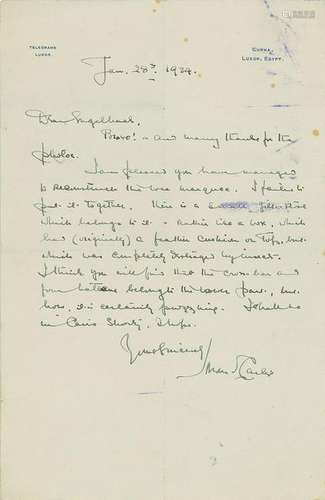 TELEGRAMS
LUXOR.
GURNA,
LUXOR, EGYPT.
Jan. 28th, 1924.
Dear Engelbach,
Bravo! – and many thanks for the
photos.
I am pleased you have managed
to reconstruct the wee marquee. I failed to
put it together. There is a
which belongs to it – rather like a box, which
had (originally) a feather cushion on top, but
which was completely destroyed by insects.
I think you will find that the cross bar and
four battens belong to the lower part, but
how, it is certainly puzzling. I shall be
in Cairo shortly, I hope.
Yours Sincerely
Howard Carter